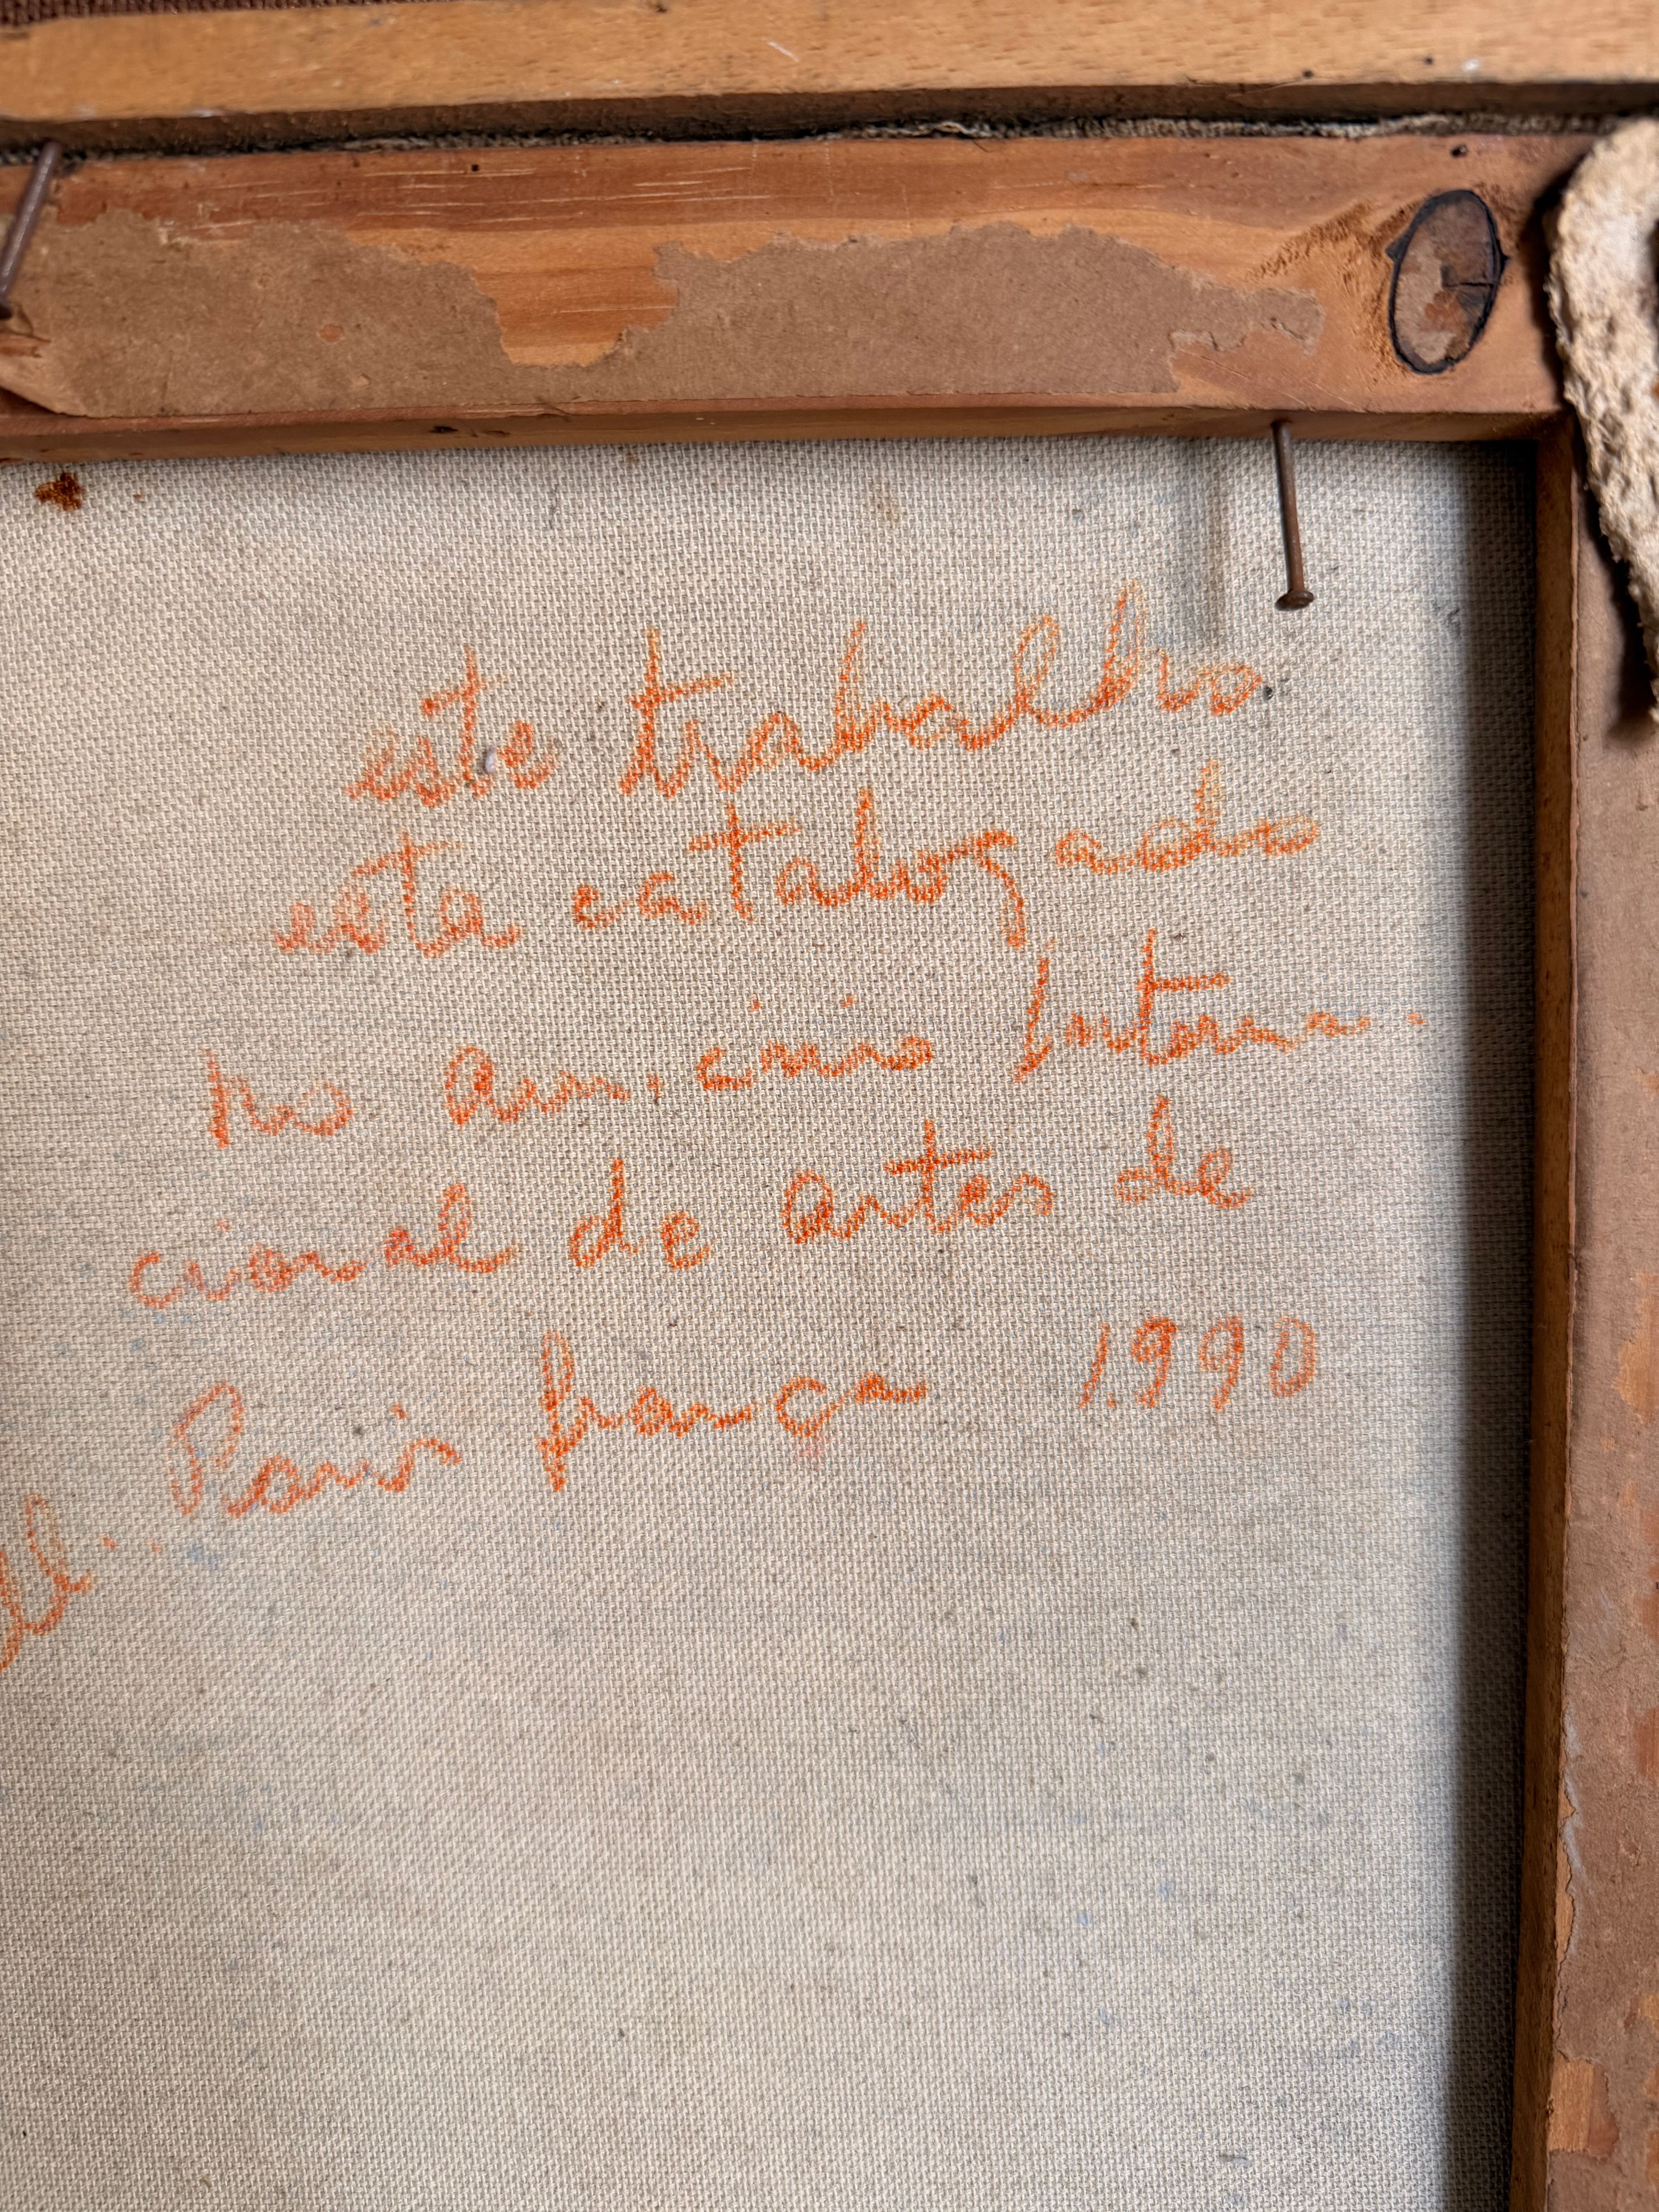 este trabalho
esta catalogado
no anu, cinio Interna-
cional de artes de
Paris frança 1.990